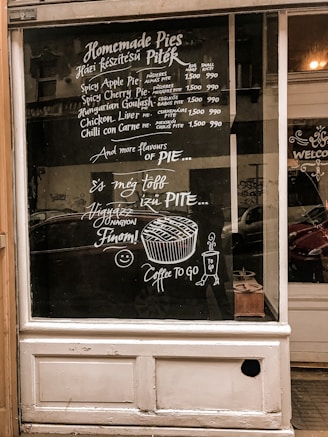 Homemade Pies
Házi készítésű Piték
BIG SMALL
Spicy Apple Pie- FŰSZERES ALMÁS PITE 1,500 990
Spicy Cherry Pie- FŰSZERES MEGGYES PITE 1,500 990
Hungarian Goulash- 1,500 990
Chicken Liver PIE- 1,500 990
Chilli con Carne PIE- 1,500 990
And more flavours
OF PIE...
És még több
ízű PITE...
Vigyázz
NAGYON
Finom!
Coffee TO GO
TO GO
WELCO